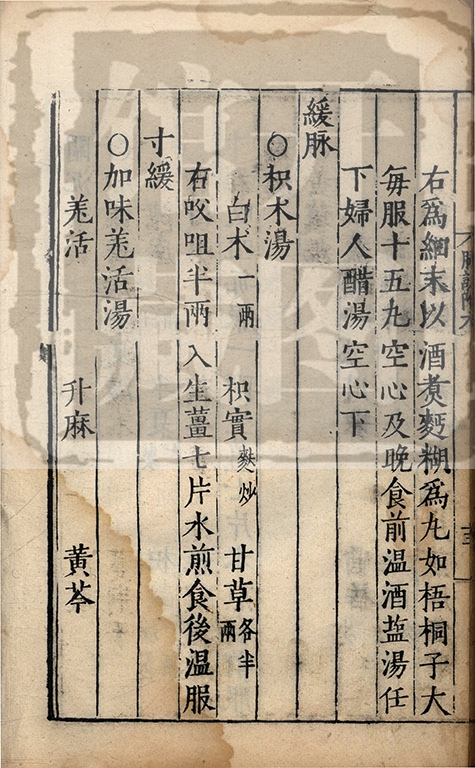 右爲細末以酒煮麪糊爲丸如梧桐子大
每服十五丸空心及晚食前温酒盐湯任
下婦人醋湯空心下
緩脉
○枳术湯
白术一兩 枳實麩炒 甘草各半兩
右㕮咀半兩入生薑七片水煎食後温服
寸緩
○加味羗活湯
羗活 升麻 黄芩